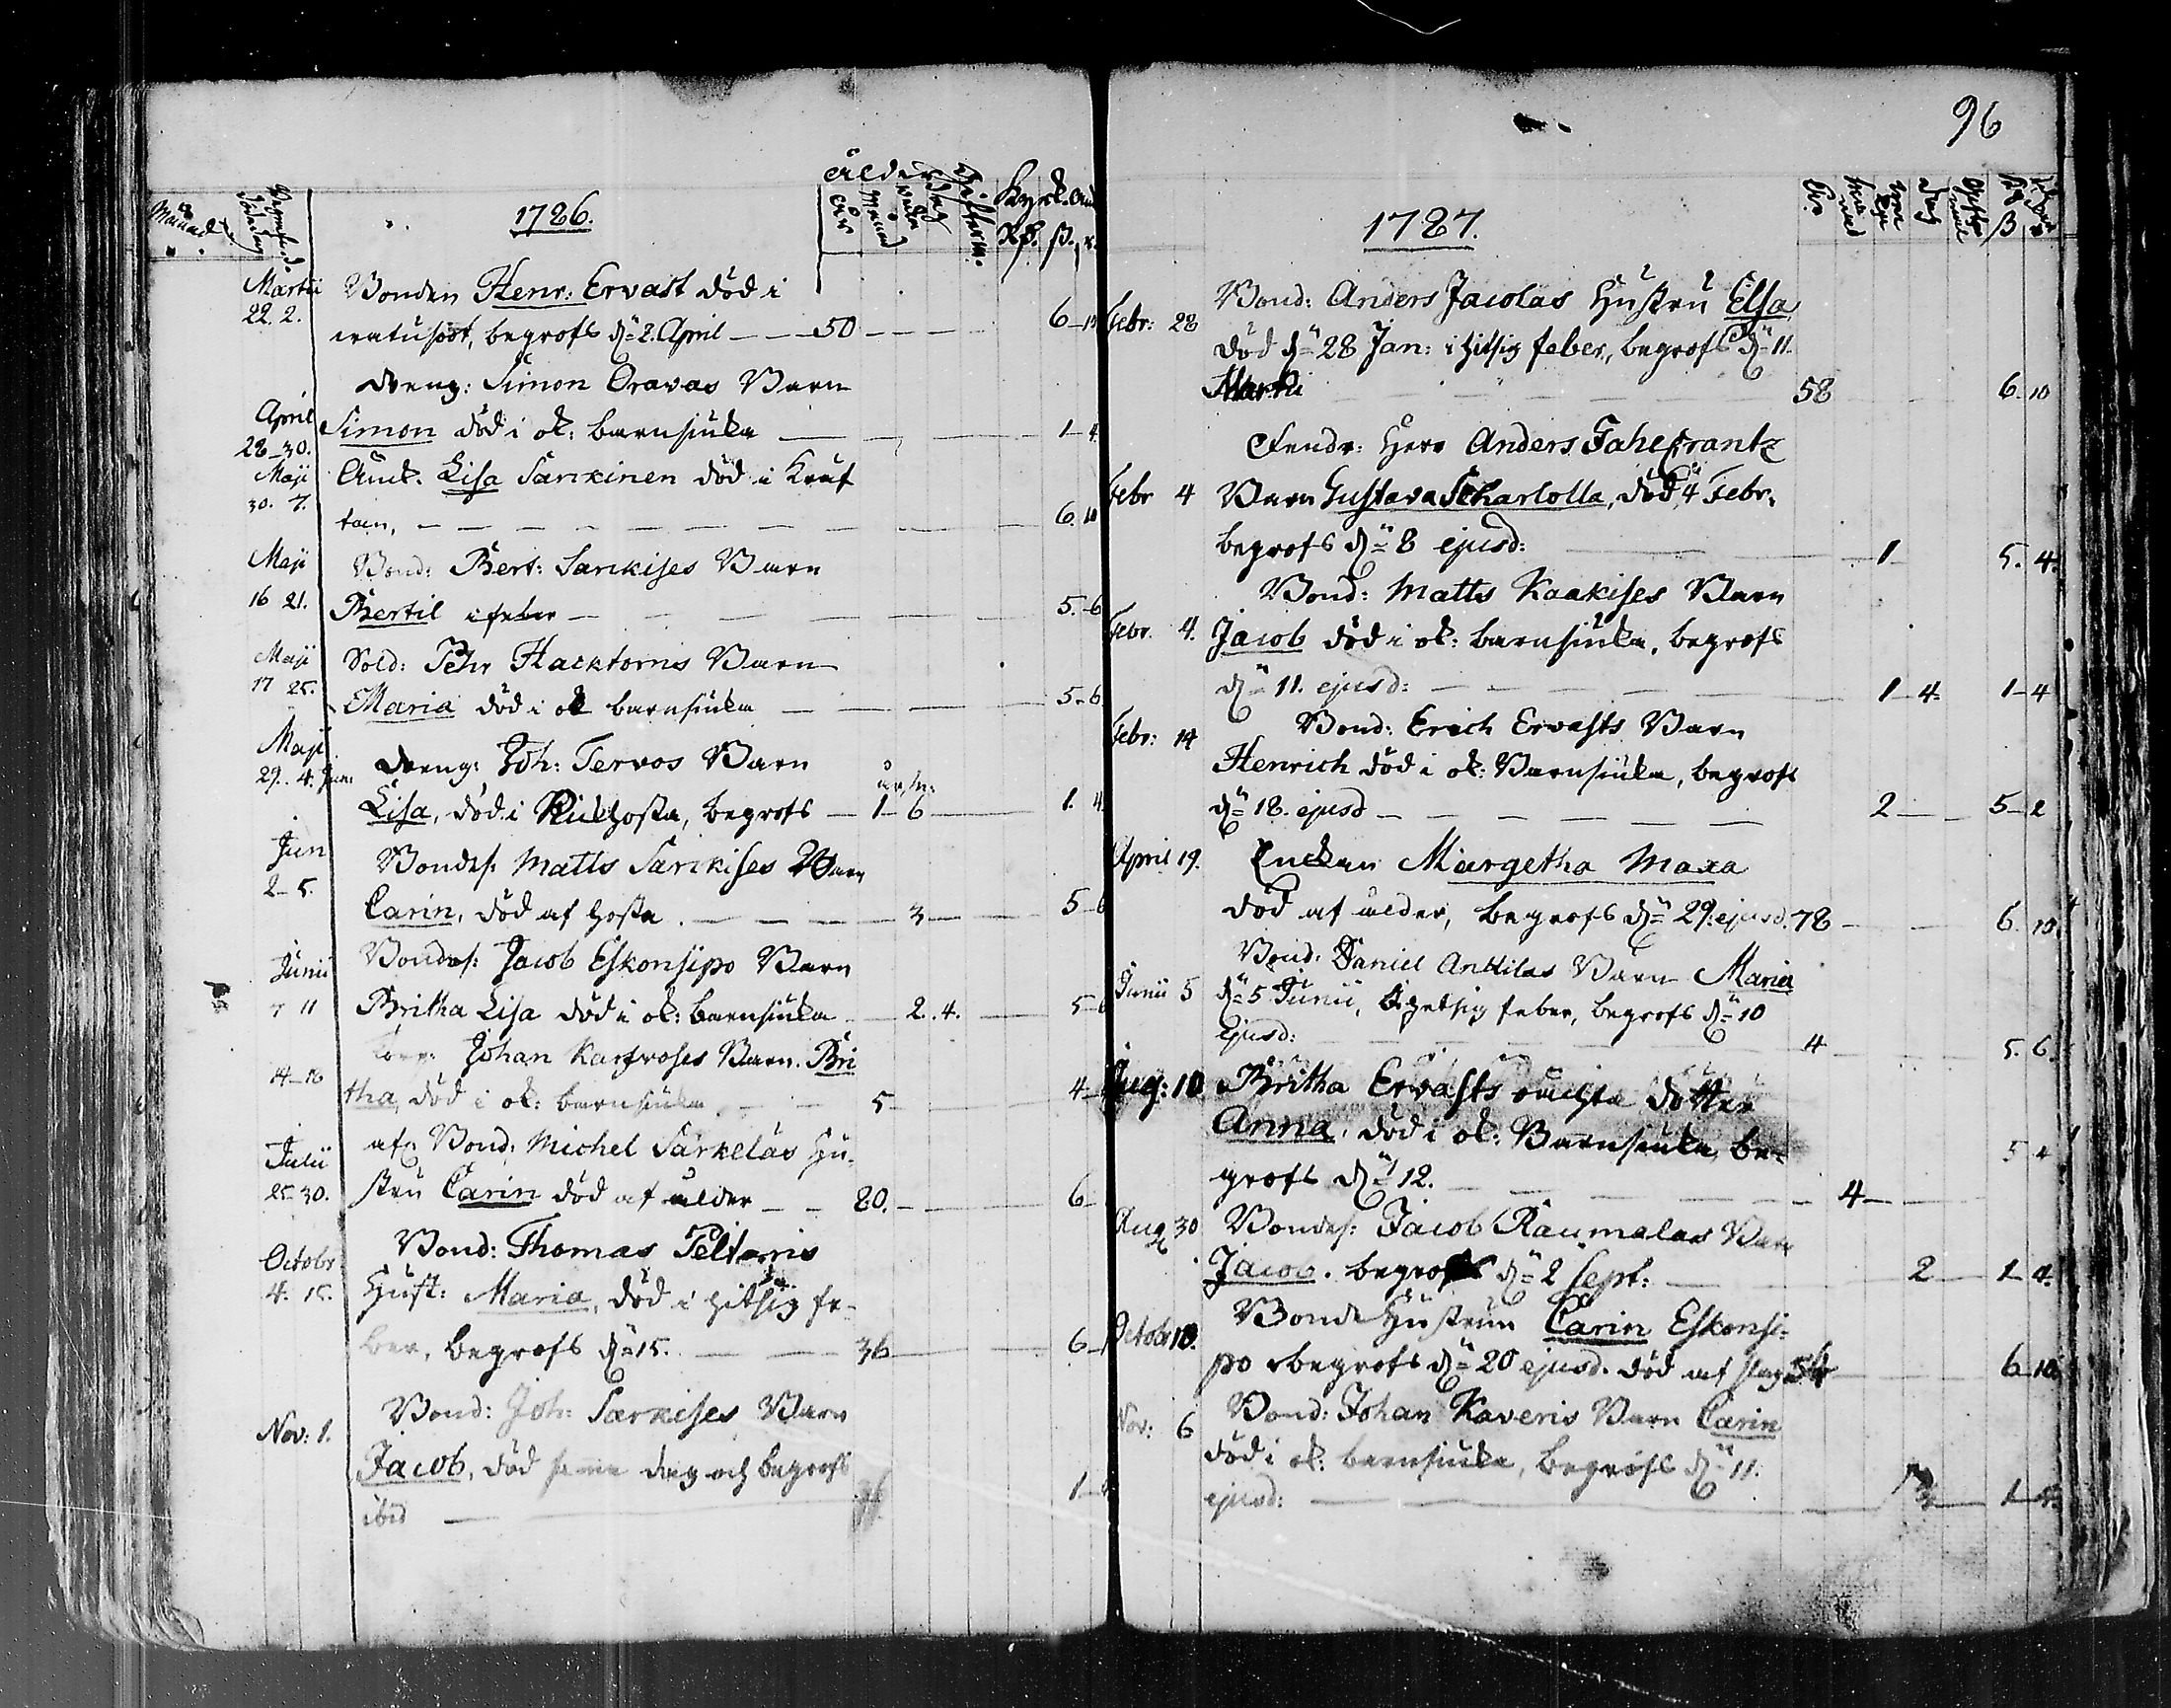 1786.
Månad
Begrafn. d.
Döds dag
ålder
år
månad
dag
Kyrk.
Martii
22. 2.
Bonden Henr: Ervast död i
begrofs dn 2. April 50 6-10
Dreng: Simon Oravas Barn
April
28-30.
Simon död i ok: barnsiuka 1-4
Maji
30. 7.
Enk. Lisa Sarkinen död i Kräf
tan, 6. 10
Maji
16 21.
Bond: Bert: Sarkises Barn
Bertil i feber 5.-6
Maji
17 25.
Sold: Pehr Hacktorns Barn
Maria död i ok barnsiuka 5-6
Maji
29. 4. Jun:
Dreng: Joh: Tervos Barn
Lisa, död i Kikhosta, begrofs 1-6 1. 4
Jun
2-5.
Bondes: Matts Sarkises Barn
Carin, död af hosta. 3 5-6
Junii
7 11
Bondes: Jacob Eskonsipo Barn
Britha Lisa död i ok: barnsiuka 2. 4. 5-6
Johan Karfvoses Barn. Bri
14-16
tha, död i ok: barnsiuka 5 4-
Julii
25-30.
afs: Bond: Michel Särkeläs Hu-
stru Carin död af ålder 80. 6-
Bond: Thomas Peltaris
Octobr
4. 15.
Hust: Maria, död i hitsig fe-
ber, begrofs dn 15. 36 6-
Bond: Joh: Sarkises Barn
Nov: 1.
Jacob, död samma dag och begrofs
ibid 1-4
96
1787.
Bond: Anders Jacolas Hustru Elsa
Febr: 28
död dn 28 Jan: i hitsig feber, begrofs dn 11.
Martii 58 6-10
Fendr: Herr Anders Fahlcrantz
Febr 4 Barn Gustava Scharlotta, död 4 Febr.
begrofs dn 8 ejusd: 1 5. 4.
Bond: Matts Kaakises Barn
Febr. 4. Jacob död i ok: barnsiuka, begrofs
dn 11. ejusd: 1-4 1-4
Febr: 14 Bond: Erich Ervasts Barn
Henrich död i ok: Barnsiuka, begrofs
dn 18. ejusd 2 5-2
April 19. Enckan Margetha Maxa
död af ålder, begrofs dn 29: ejusd. 78 6. 10
Bond: Daniel Anttilas Barn Maria
Junii 5 dn 5 Junii, i hetsig feber, begrofs dn 10
ejusd: 4 5. 6.
Aug: 10 Britha Ervasts oächta dotter
Anna, död i ok: Barnsiuka, be-
grofs dn 12. 4 5 4
Aug 30 Bondes: Jacob Raumalas Barn
Jacob. begrofs dn 2 Sept: 2 1-4.
Bonde Hustrun Carin Eskonsi-
Octobr 10.
po begrofs dn 20 ejusd. död af slag 54 6-10
Nov: 6 Bond: Johan Kaveris Barn Carin
död i ok: barnsiuka, begrofs dn 11.
ejusd: 1-4